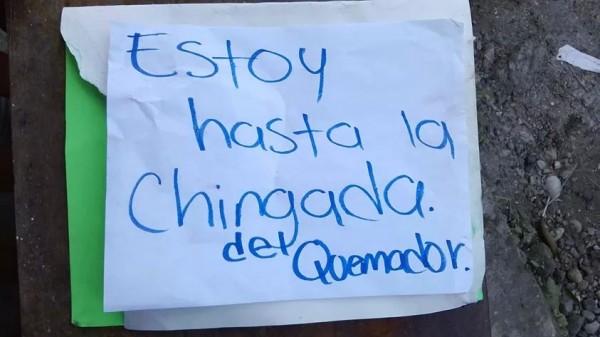 Estoy
hasta la
Chingada.
del Quemador.